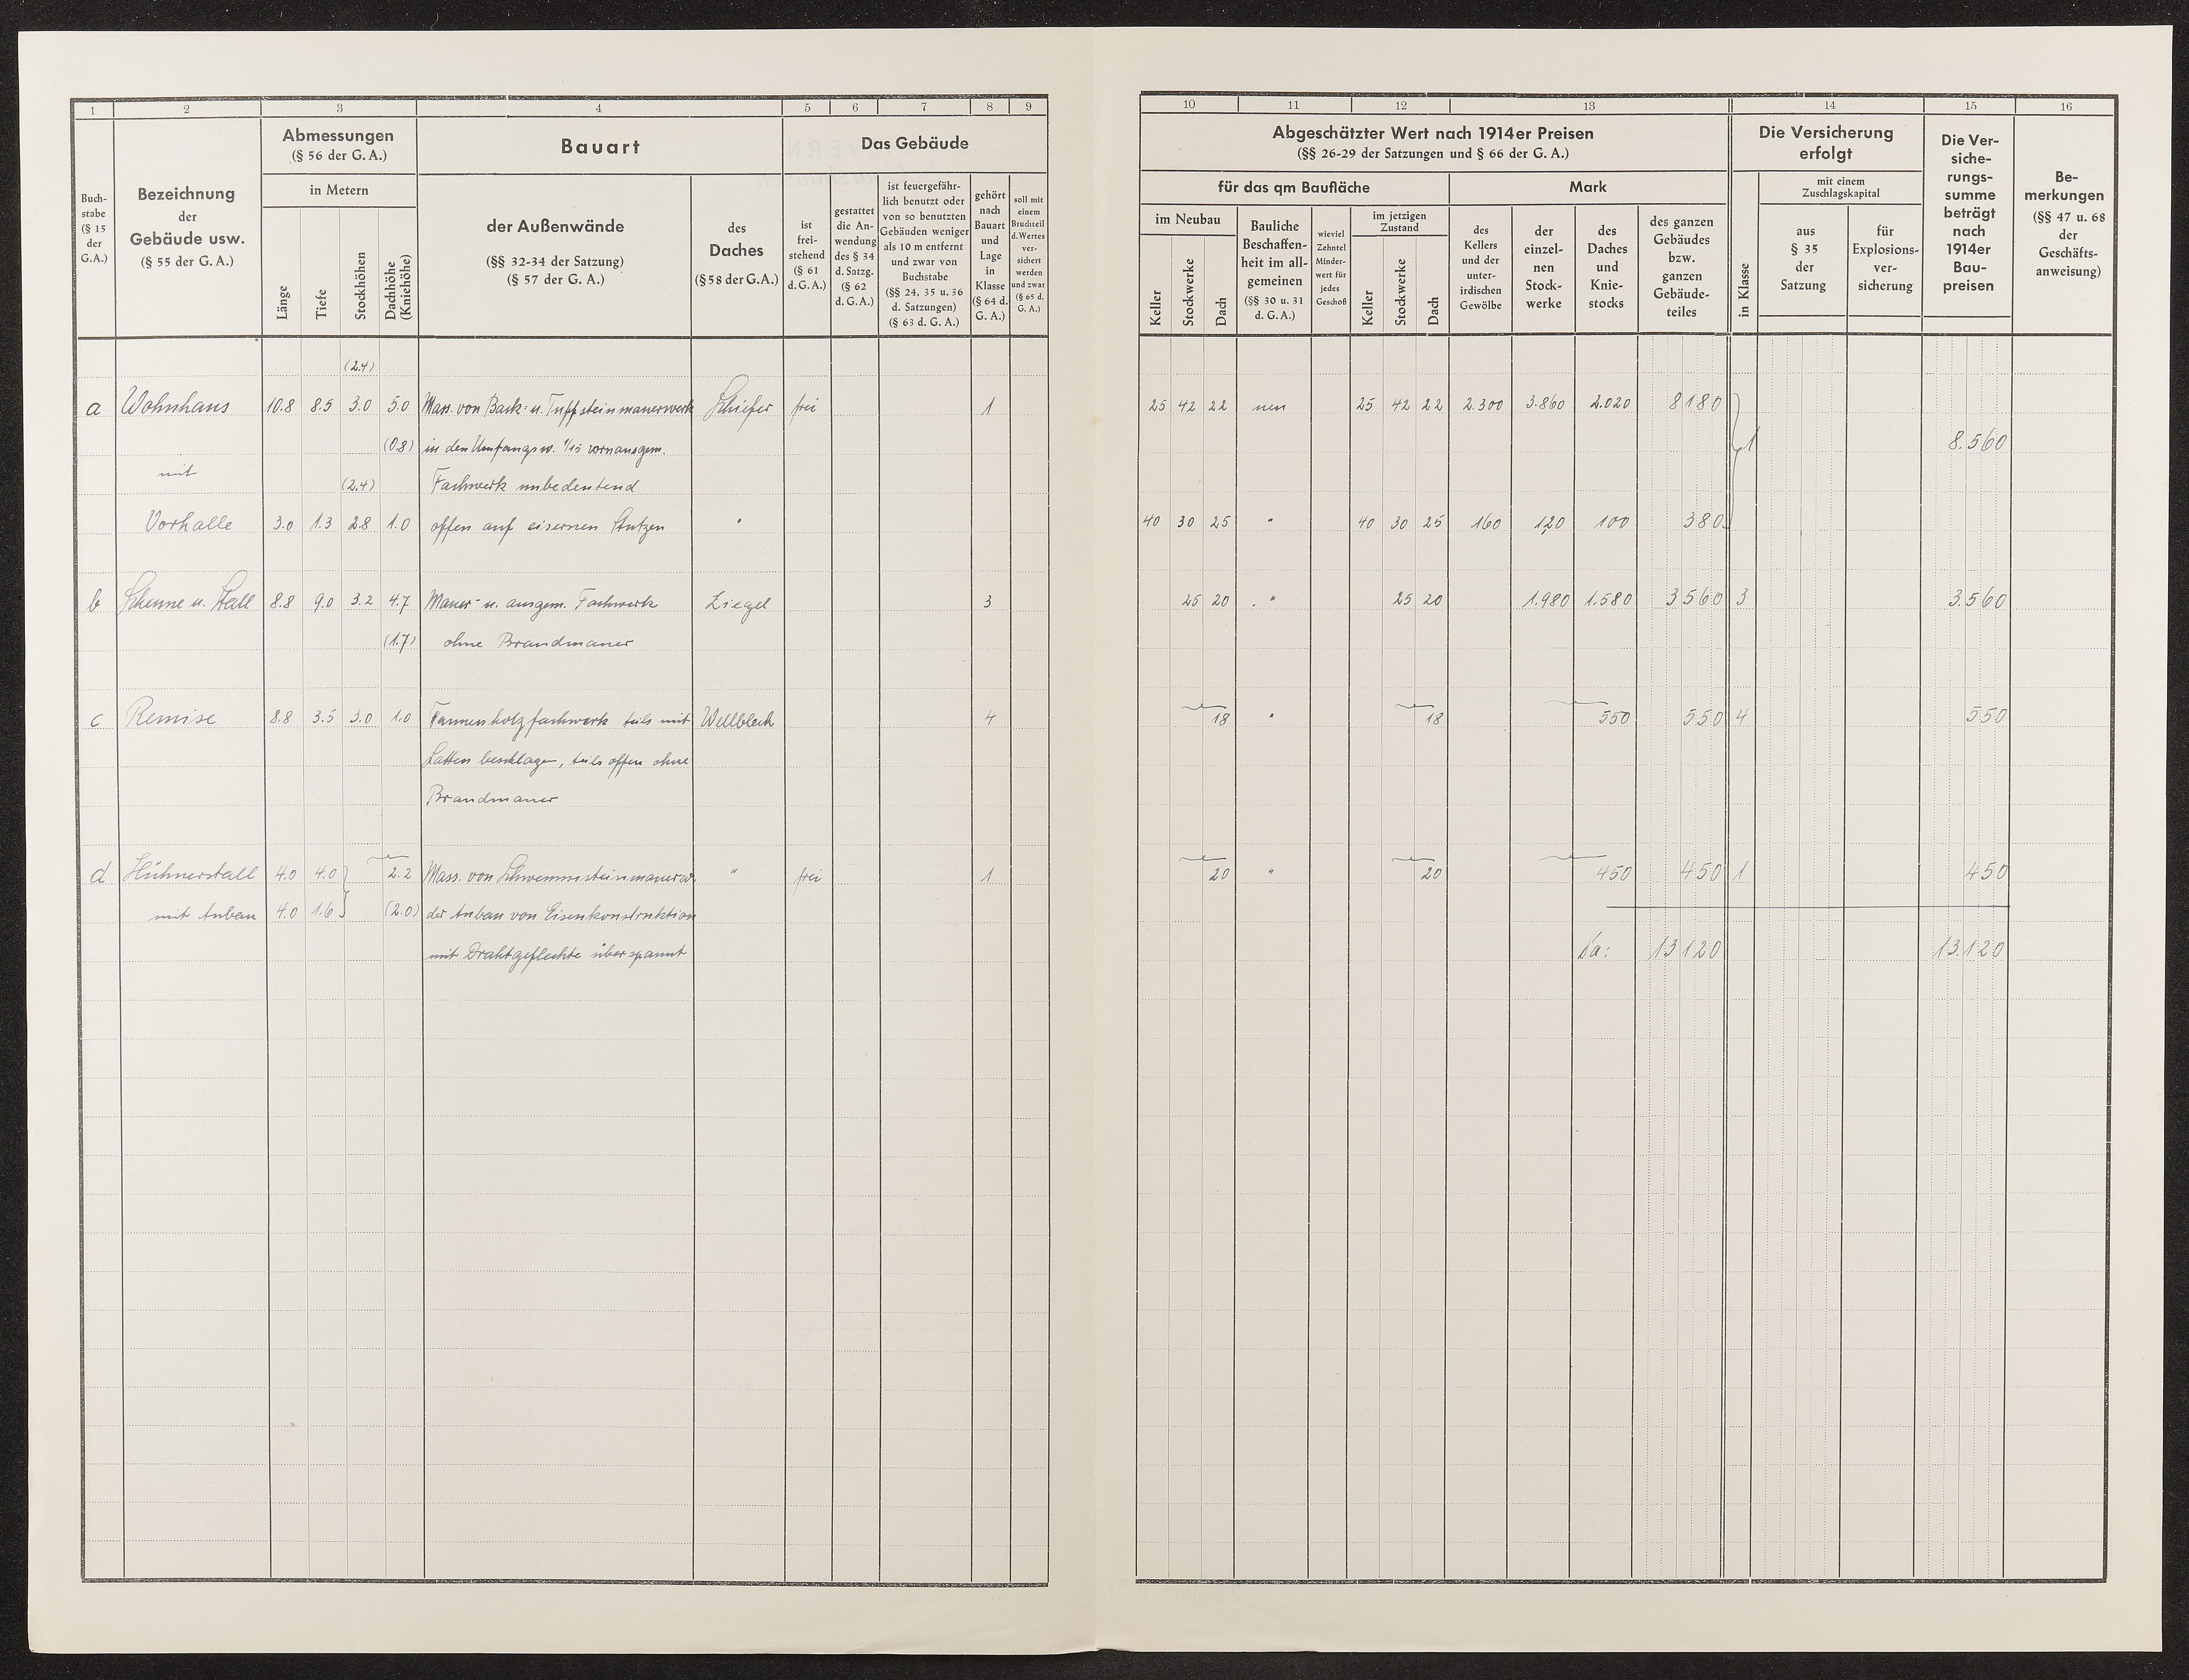 1 2 3 4 5 6 7 8 9
Buch-
stabe
(§ 15
der
G.A.)
Bezeichnung
der
Gebäude usw.
(§ 55 der G. A.)
Abmessungen
(§ 56 der G. A.)
in Metern
Länge
Tiefe
Stockhöhen
Dachhöhe
(Kniehöhe)
Bauart
der Außenwände
(§§ 32-34 der Satzung)
(§ 57 der G. A.)
des
Daches
(§ 58 der G.A.)
Das Gebäude
ist
frei-
stehend
(§ 61
d. G. A.)
gestattet
die An-
wendung
des § 34
d. Satzg.
(§ 62
d. G. A.)
ist feuergefähr-
lich benutzt oder
von so benutzten
Gebäuden weniger
als 10 m entfernt
und zwar von
Buchstabe
(§§ 24, 35 u. 36
d. Satzungen)
(§ 63 d. G. A.)
gehört
nach
Bauart
und
Lage
in
Klasse
(§ 64 d.
G. A.)
soll mit
einem
Bruchteil
d. Wertes
ver-
sichert
werden
und zwar
(§ 65 d.
G. A.)
(2.4)
a Wohnhaus 10.8 8.5 3.0 5.0 Mass. von Back- u. Tuffsteinmauerwerk Schiefer frei 1
(0.8) in den Umfangsw. 1/15 vornausgem.
mit (2.4) Fachwerk unbedeutend
Vorhalle 3.0 1.3 2.8 1.0 offen auf eisernen Stutzen "
b Scheune u. Stall 8.8 9.0 3.2 4.7 Mauer- u. ausgem. Fachwerk Ziegel 3
(1.7) ohne Brandmauer
c Remise 8.8 3.5 3.0 1.0 Tannenholzfachwerk teils mit Wellblech 4
Latten beschlagen, teils offen ohne
Brandmauer
d Hühnerstall 4.0 4.0 2.2 Mass. von Schwemmsteinmauerw. " frei 1
mit Anbau 4.0 1.6 (2.0) der Anbau von Eisenkonstruktion
mit Drahtgeflechte überspannt
10 11 12 13 14 15 16
Abgeschätzter Wert nach 1914er Preisen
(§§ 26-29 der Satzungen und § 66 der G. A.)
für das qm Baufläche
im Neubau
Keller
Stockwerke
Dach
Bauliche
Beschaffen-
heit im all-
gemeinen
(§§ 30 u. 31
d. G. A.)
wieviel
Zehntel
Minder-
wert für
jedes
Geschoß
im jetzigen
Zustand
Keller
Stockwerke
Dach
Mark
des
Kellers
und der
unter-
irdischen
Gewölbe
der
einzel-
nen
Stock-
werke
des
Daches
und
Knie-
stocks
des ganzen
Gebäudes
bzw.
ganzen
Gebäude-
teiles
Die Versicherung
erfolgt
in Klasse
mit einem
Zuschlagskapital
aus
§ 35
der
Satzung
für
Explosions-
ver-
sicherung
Die Ver-
siche-
rungs-
summe
beträgt
nach
1914er
Bau-
preisen
Be-
merkungen
(§§ 47 u. 68
der
Geschäfts-
anweisung)
25 42 22 neu 25 42 22 2.300 3.860 2.020 8180
1 8.560
40 30 25 " 40 30 25 160 120 100 380
25 20 " 25 20 1.980 1.580 3560 3 3.560
18 " 18 550 550 4 550
20 " 20 450 450 1 450
Sa: 13120 13.120